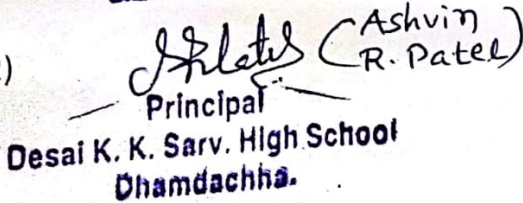 (Ashvin
R. Patel)
Principal
Desai K. K. Sarv. High School
Dhamdachha.